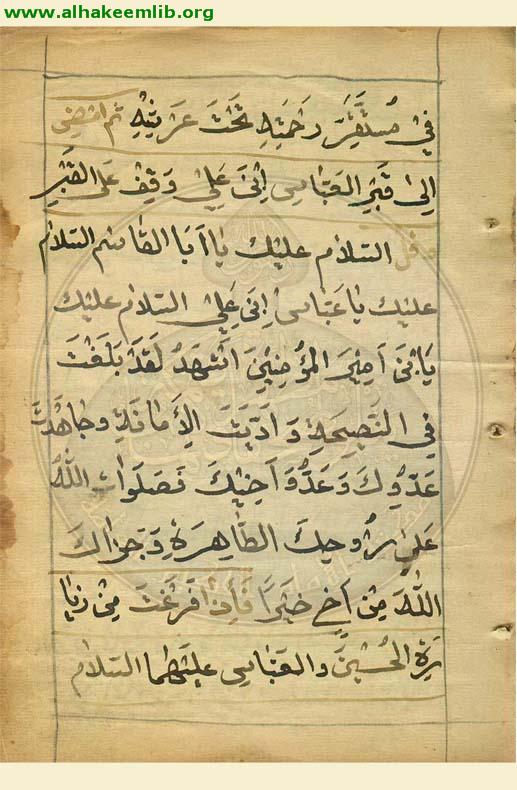 www.alhakeemlib.org
في مستقر رحمته تحت عرشه ثم امضى
الى قبر العباس ابن علي وقف على القبر
وقل السلام عليك يا ابا القاسم السلام
عليك يا عباس ابن علي السلام عليك
يا بن امير المؤمنين اشهد لقد بلغت
في النصيحة و اديت الأمانة وجاهدت
عدوك وعدو اخيك فصلوات الله
على روحك الطاهرة وجزاك
الله من اخ خيرا فاذا فرغت من زيا
رة الحسين والعباس عليهما السلام